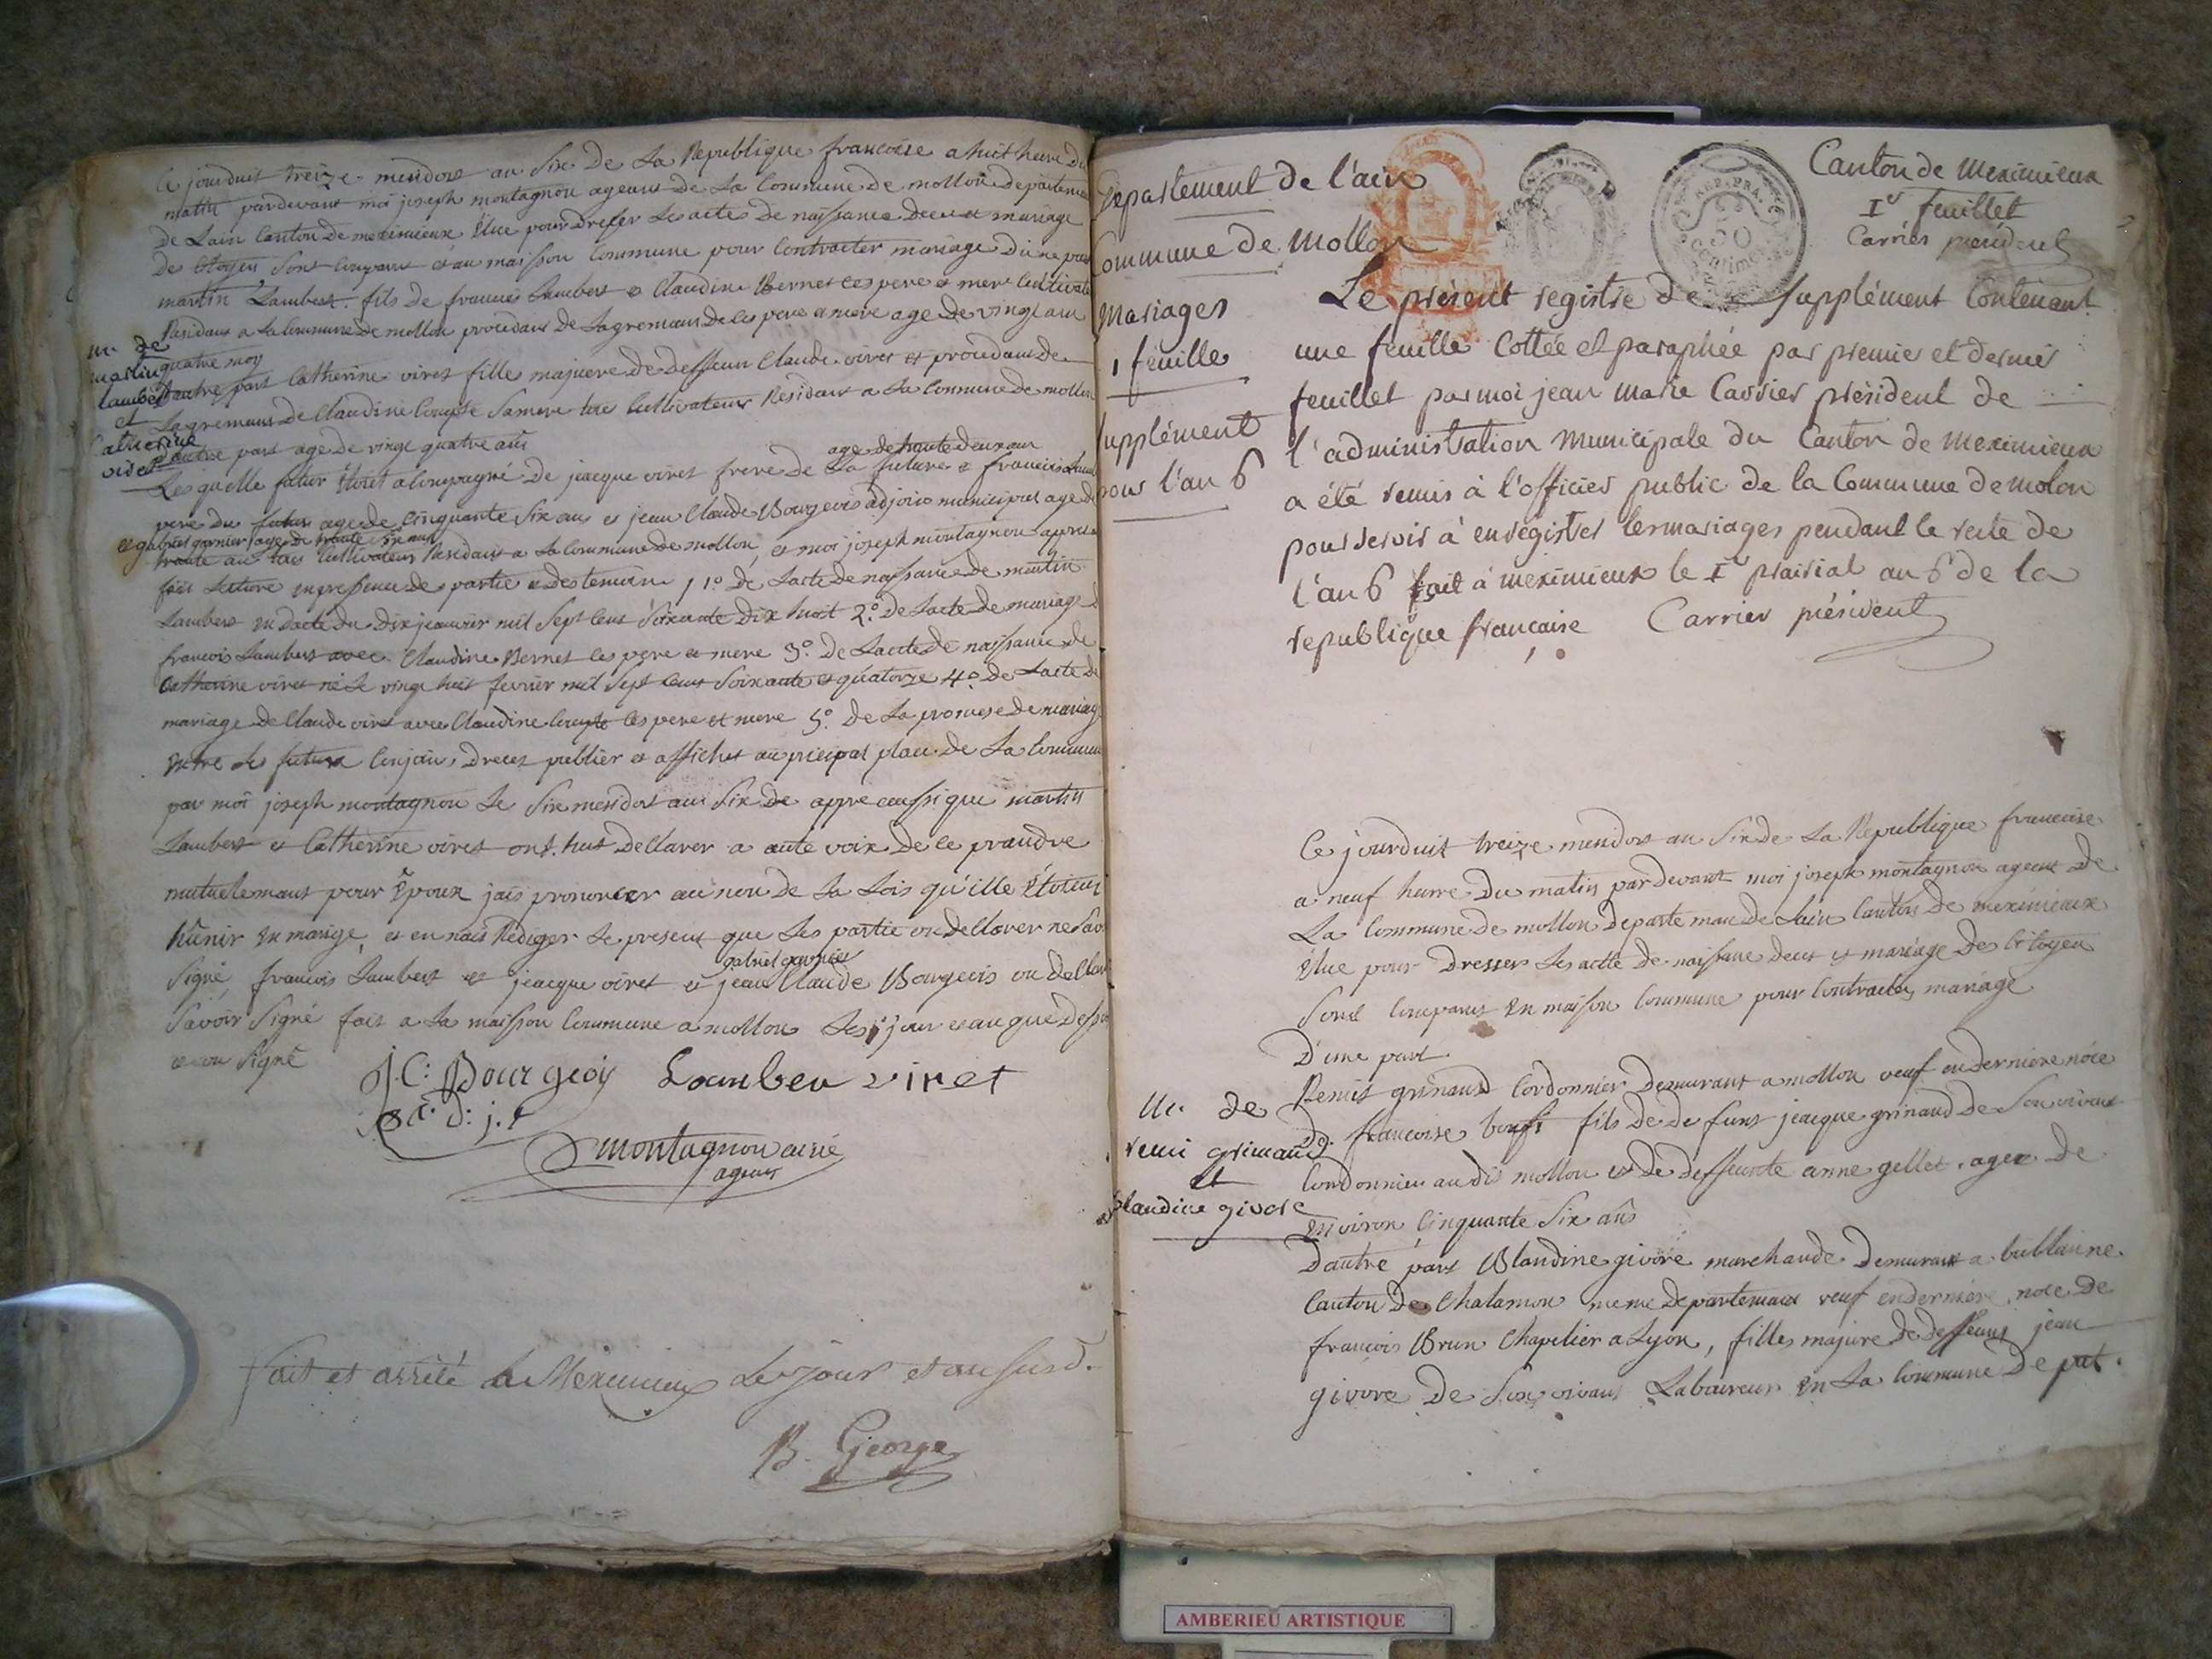 Ce jourduit treize mesidort an Six de La Republique francoise a huit heure du
matin pardevant moi joseph montagnon ageant de La Commune de mollon departemen
de Lain Canton de meximieux Elue pour dresser Les actes de naissance deces et mariage
des Citoyen Sont conparut en au maisson Commune pour Contracter mariage d'une part
martin Lambert fils de francois Lambert et Claudine Bernet ces pere et mere Cultivate
Residant a La Commune de mollon procedant de Lagremant de ces pere a mere age de vingt ans
quatre moy
m. de
martin
lambert
et
Catherine
viret
d'autre part Catherine viret fille majeure de deffeun Claude viret et procedant de
Lagremant de Claudine Coupte Samere tous Cultivateur Residant a La Commune de mollon
d'autre part age de vingt quatre ans
age de trante deux an
Lesquelle futur Etoit aConpagné de jacque viret frere de La future et francois Lam
pere du futur age de Cinquante Six ans et jean Claude Bourgeois adjoint municipal age de
et gabriel garnier age de trante six ans
trante an tous Cultivateur Residant a La Commune de mollon et moi joseph montagnon appres
fait Lecture en presence de partie et des temoin 1º de Lacte de naissance de martin
Lambert en dacte du dix jeanvier mil Sept Cent Soixante dix huit 2º de Lacte de mariage d
francois Lambert avec Claudine Bernet ces pere et mere 3º de Lacte de naissance de
Catherine viret né Le vingt huit fevrier mil Sept Cent Soixante et quatorze 4º de Lacte de
mariage de Claude viret avec Claudine Coupte ces pere et mere 5º de La promese de mariage
Entre Les futurs Conjoins dreces publier et afficher au picipal place de La Commune
par moi joseph montagnon Le Six mesidort an Six de appre aussi que martin
Lambert et Catherine viret ont hut declarer a aute voix de ce prandre
mutuelemant pour Epoux jais prononcer au non de La Lois qu'ille Etoient
hunir en marige, et en nais Rediger Le present que Les partie on declarer ne Savoi
gabriel garnier
Signé francois Lambert et jeacque viret et jean Claude Bourgeois on declar
Savoir Signé fait a La maisson Commune a mollon Les jour et an que dessu
et on Signé
J. C. Bourgeois Lambert viret
montagnon ainé
ageant
Fait et arrêté a Meximieux Les jour et an susd.
B. George
Departement de l'ain
Commune de Mollon
Mariages
1 feuille
Supplément
pour l'an 6
REP. FRA.
50
Centimes
Canton de Meximieux
Ier feuillet
Carrier président
Le présent registre de Supplément Contenant
une feuille Cottée et paraphée par premier et dernier
feuillet par moi jean Marie Carrier président de
l'administration Municipale du Canton de Meximieux
a été remis à l'officier public de la Commune de molon
pour servir à enrégistrer les mariages pendant le reste de
l'an 6 fait à meximieux le Ier prairial an 6 de la
republique francaise Carrier président
Ce jourduit treize mesidort an Six de La Republique francoise
a neuf hurre du matin pardevant moi joseph montagnon ageant de
La Commune de mollon departeman de Lain Canton de meximieux
Elue pour Dresser Les actte de naissance deces et mariage des Citoyen
Sont Conparut en maison Commune pour Contracter mariage
D'une part
m. de
remi grimaud
et
blandine givore
Remit grimaud Cordonnier demurant a mollon veuf en derniere noce
de francoise fils de defunt jeacque grimaud de Son vivant
Cordonnier au dit mollon et de deffeunte anne gellet, agee de
Environ Cinquante Six ans
D'autre part Blandine givore marchande Demurant a
Canton de Chalamon meme departemant veuf en derniere noce de
francois Brun Chapelier a Lyon, filles majure de deffeunt jean
givore de Son vivant Laboureur en La Commune de
AMBERIEU ARTISTIQUE